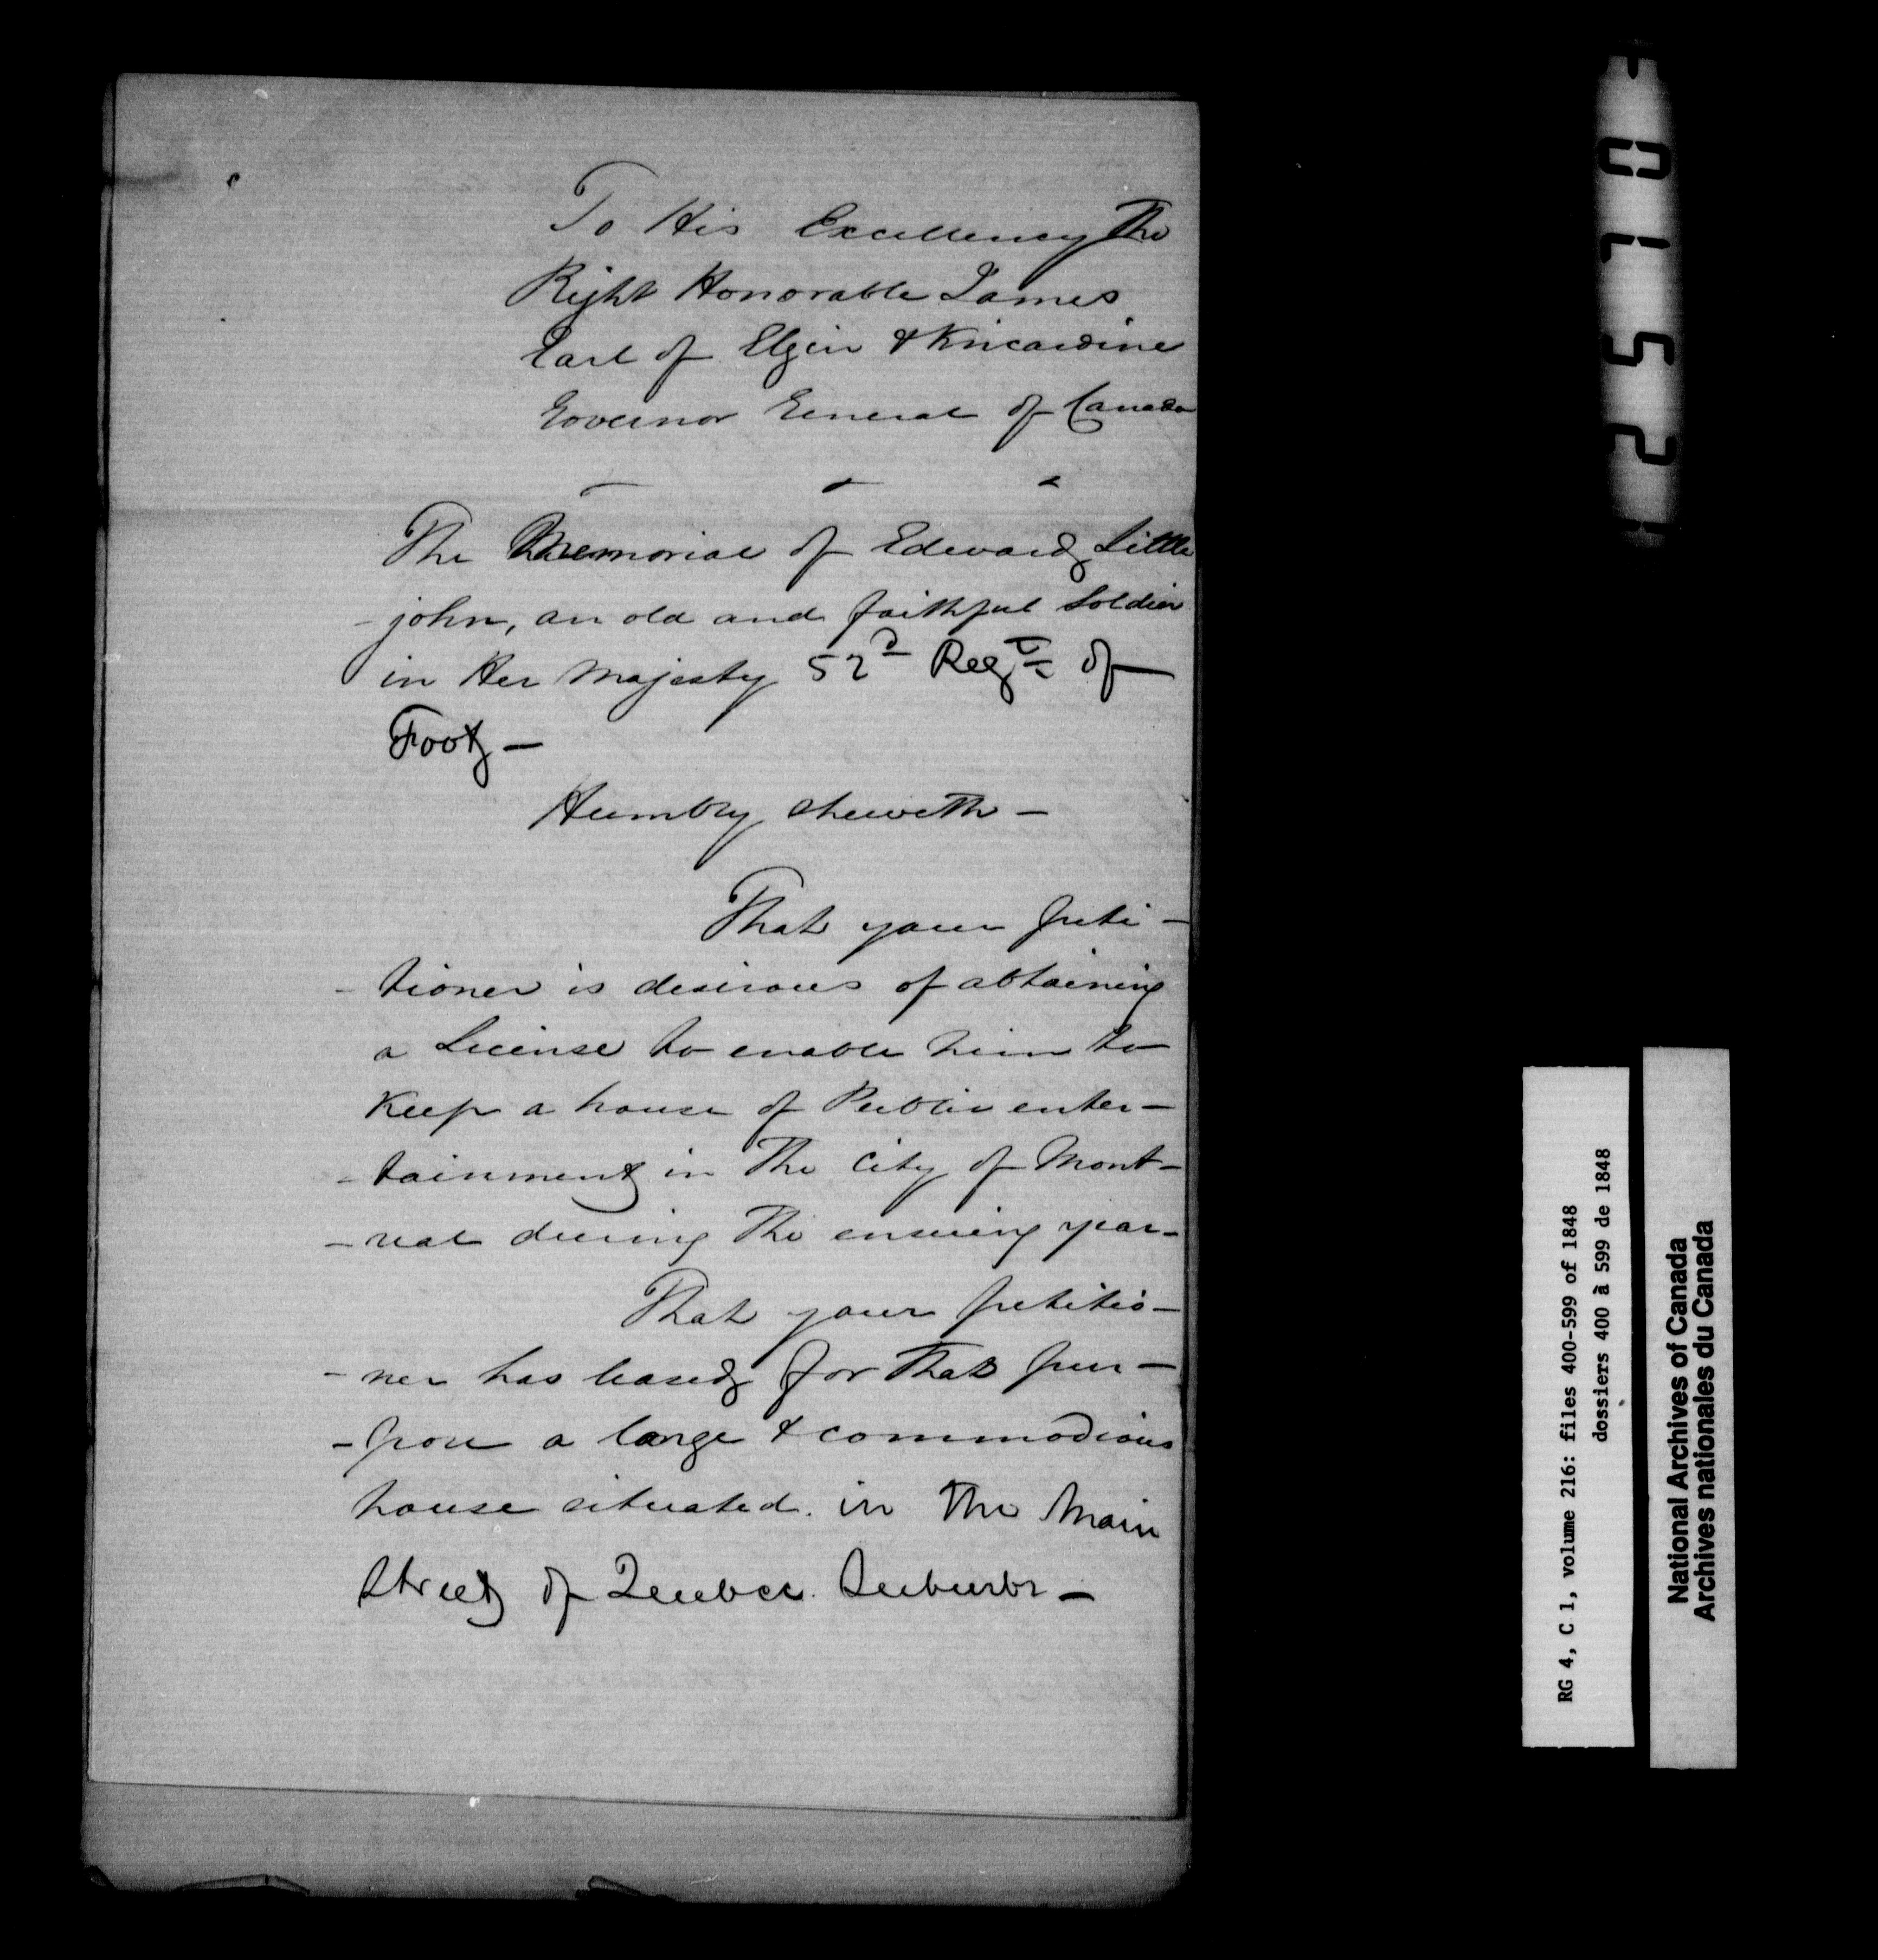 To His Excellency The
Right Honorable James
Earl of Elgin & Kincardine
Governor General of Canada
The Memorial of Edward Little
- john, an old and faithful Soldier
in Her Majesty 52d Regt of
Foot —
Humbly sheweth —
That your peti -
- tioner is desirous of obtaining
a License to enable him to
Keep a house of Public enter -
- tainment in The City of Mont -
- real during The ensuing year -
That your petitio -
- ner has leased for That pur -
- pose a large & commodious
house situated in The Main
Street of Quebec Suburbs -
0152
RG 4, C 1, volume 216: files 400-599 of 1848
dossiers 400 à 599 de 1848
National Archives of Canada
Archives nationales du Canada